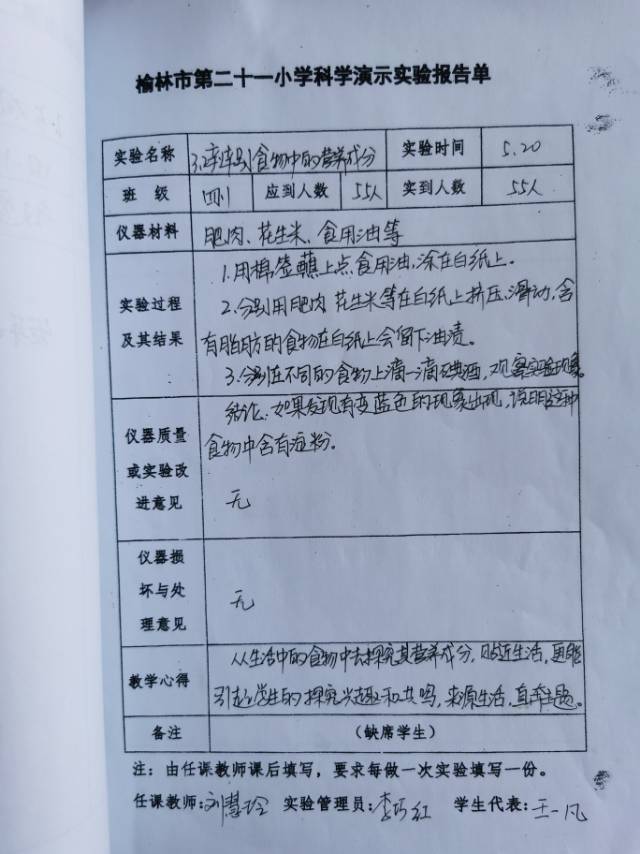 榆林市第二十一小学科学演示实验报告单
实验名称 食物中的营养成分 实验时间 5.20
班 级 四1 应到人数 55人 实到人数 55人
仪器材料 肥肉、花生米、食用油等
实验过程及其结果
1.用棉签蘸上点食用油,涂在白纸上。
2.分别用肥肉 花生米等在白纸上挤压、滑动,含
有脂肪的食物在白纸上会留下油渍。
3.分别在不同的食物上滴一滴碘酒,观察实验现象。
仪器质量或实验改进意见
结论:如果发现有变蓝色的现象出现,说明这种
食物中含有淀粉。
无
仪器损坏与处理意见
无
教学心得
从生活中的食物中去探究其营养成分,贴近生活,更能
引起学生的探究兴趣和共鸣,来源生活,直奔主题。
备注 (缺席学生)
注:由任课教师课后填写,要求每做一次实验填写一份。
任课教师:刘慧玲 实验管理员:李巧红 学生代表:王一凡